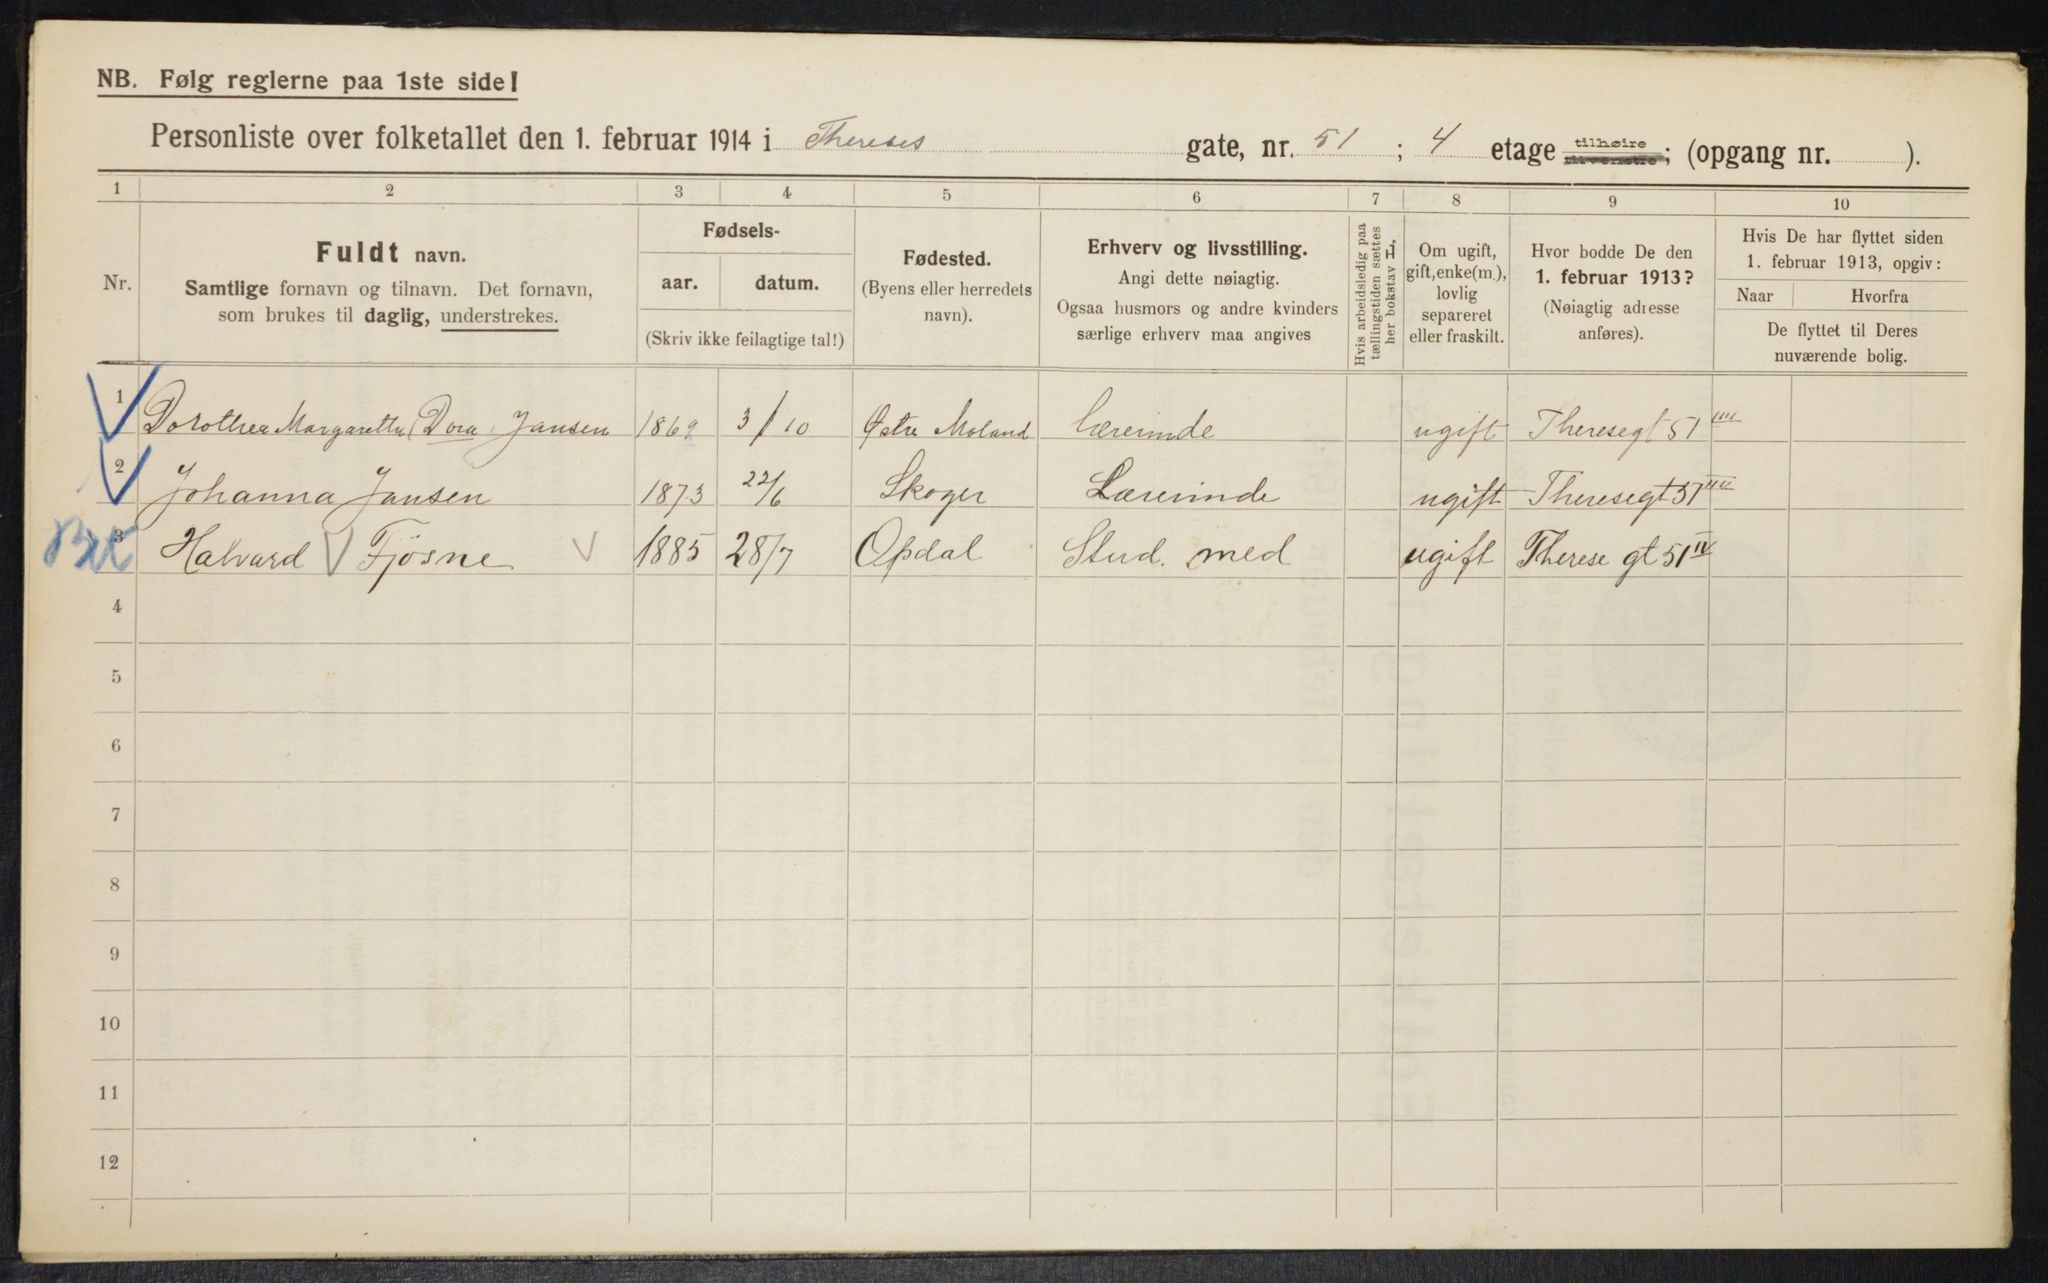 NB. Følg reglerne paa 1ste side!
Personliste over folketallet den 1. februar 1914 i Thereses gate, nr. 51 ; 4 etage tilhøire tilvenstre; (opgang nr. ).
1 2 3 4 5 6 7 8 9 10
Nr.
Fuldt navn.
Samtlige fornavn og tilnavn. Det fornavn,
som brukes til daglig, understrekes.
Fødsels-
aar. datum.
(Skriv ikke feilagtige tal!)
Fødested.
(Byens eller herredets
navn).
Erhverv og livsstilling.
Angi dette nøiagtig.
Ogsaa husmors og andre kvinders
særlige erhverv maa angives
Hvis arbeidsledig paa
tællingstiden sættes
her bokstav L.
Om ugift,
gift, enke(m.),
lovlig
separeret
eller fraskilt.
Hvor bodde De den
1. februar 1913?
(Nøiagtig adresse
anføres).
Hvis De har flyttet siden
1. februar 1913, opgiv:
Naar Hvorfra
De flyttet til Deres
nuværende bolig.
1 Dorothea Margaretha (Dora) Jansen 1869 3/10 Østre Moland Lærerinde ugift Theresegt 51 IIII
2 Johanna Jansen 1873 22/6 Skoger Lærerinde ugift Theresegt 51 IIII
3 Halvard Fjösne 1885 28/7 Opdal Stud. med ugift Therese gt 51 IV
4
5
6
7
8
9
10
11
12